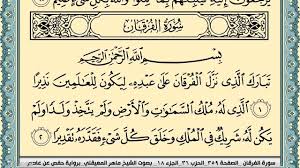 سُورَةُ الفُرْقَانِ
بِسْمِ اللَّهِ الرَّحْمَٰنِ الرَّحِيمِ
تَبَارَكَ الَّذِي نَزَّلَ الْفُرْقَانَ عَلَىٰ عَبْدِهِ لِيَكُونَ لِلْعَالَمِينَ نَذِيرًا
١ الَّذِي لَهُ مُلْكُ السَّمَاوَاتِ وَالْأَرْضِ وَلَمْ يَتَّخِذْ وَلَدًا وَلَمْ
يَكُن لَّهُ شَرِيكٌ فِي الْمُلْكِ وَخَلَقَ كُلَّ شَيْءٍ فَقَدَّرَهُ تَقْدِيرًا ٢
سورة الفرقان الصفحة ٣٥٩ الحزب ٣٦ الجزء ١٨ بصوت الشيخ ماهر المعيقلي برواية حفص عن عاصم